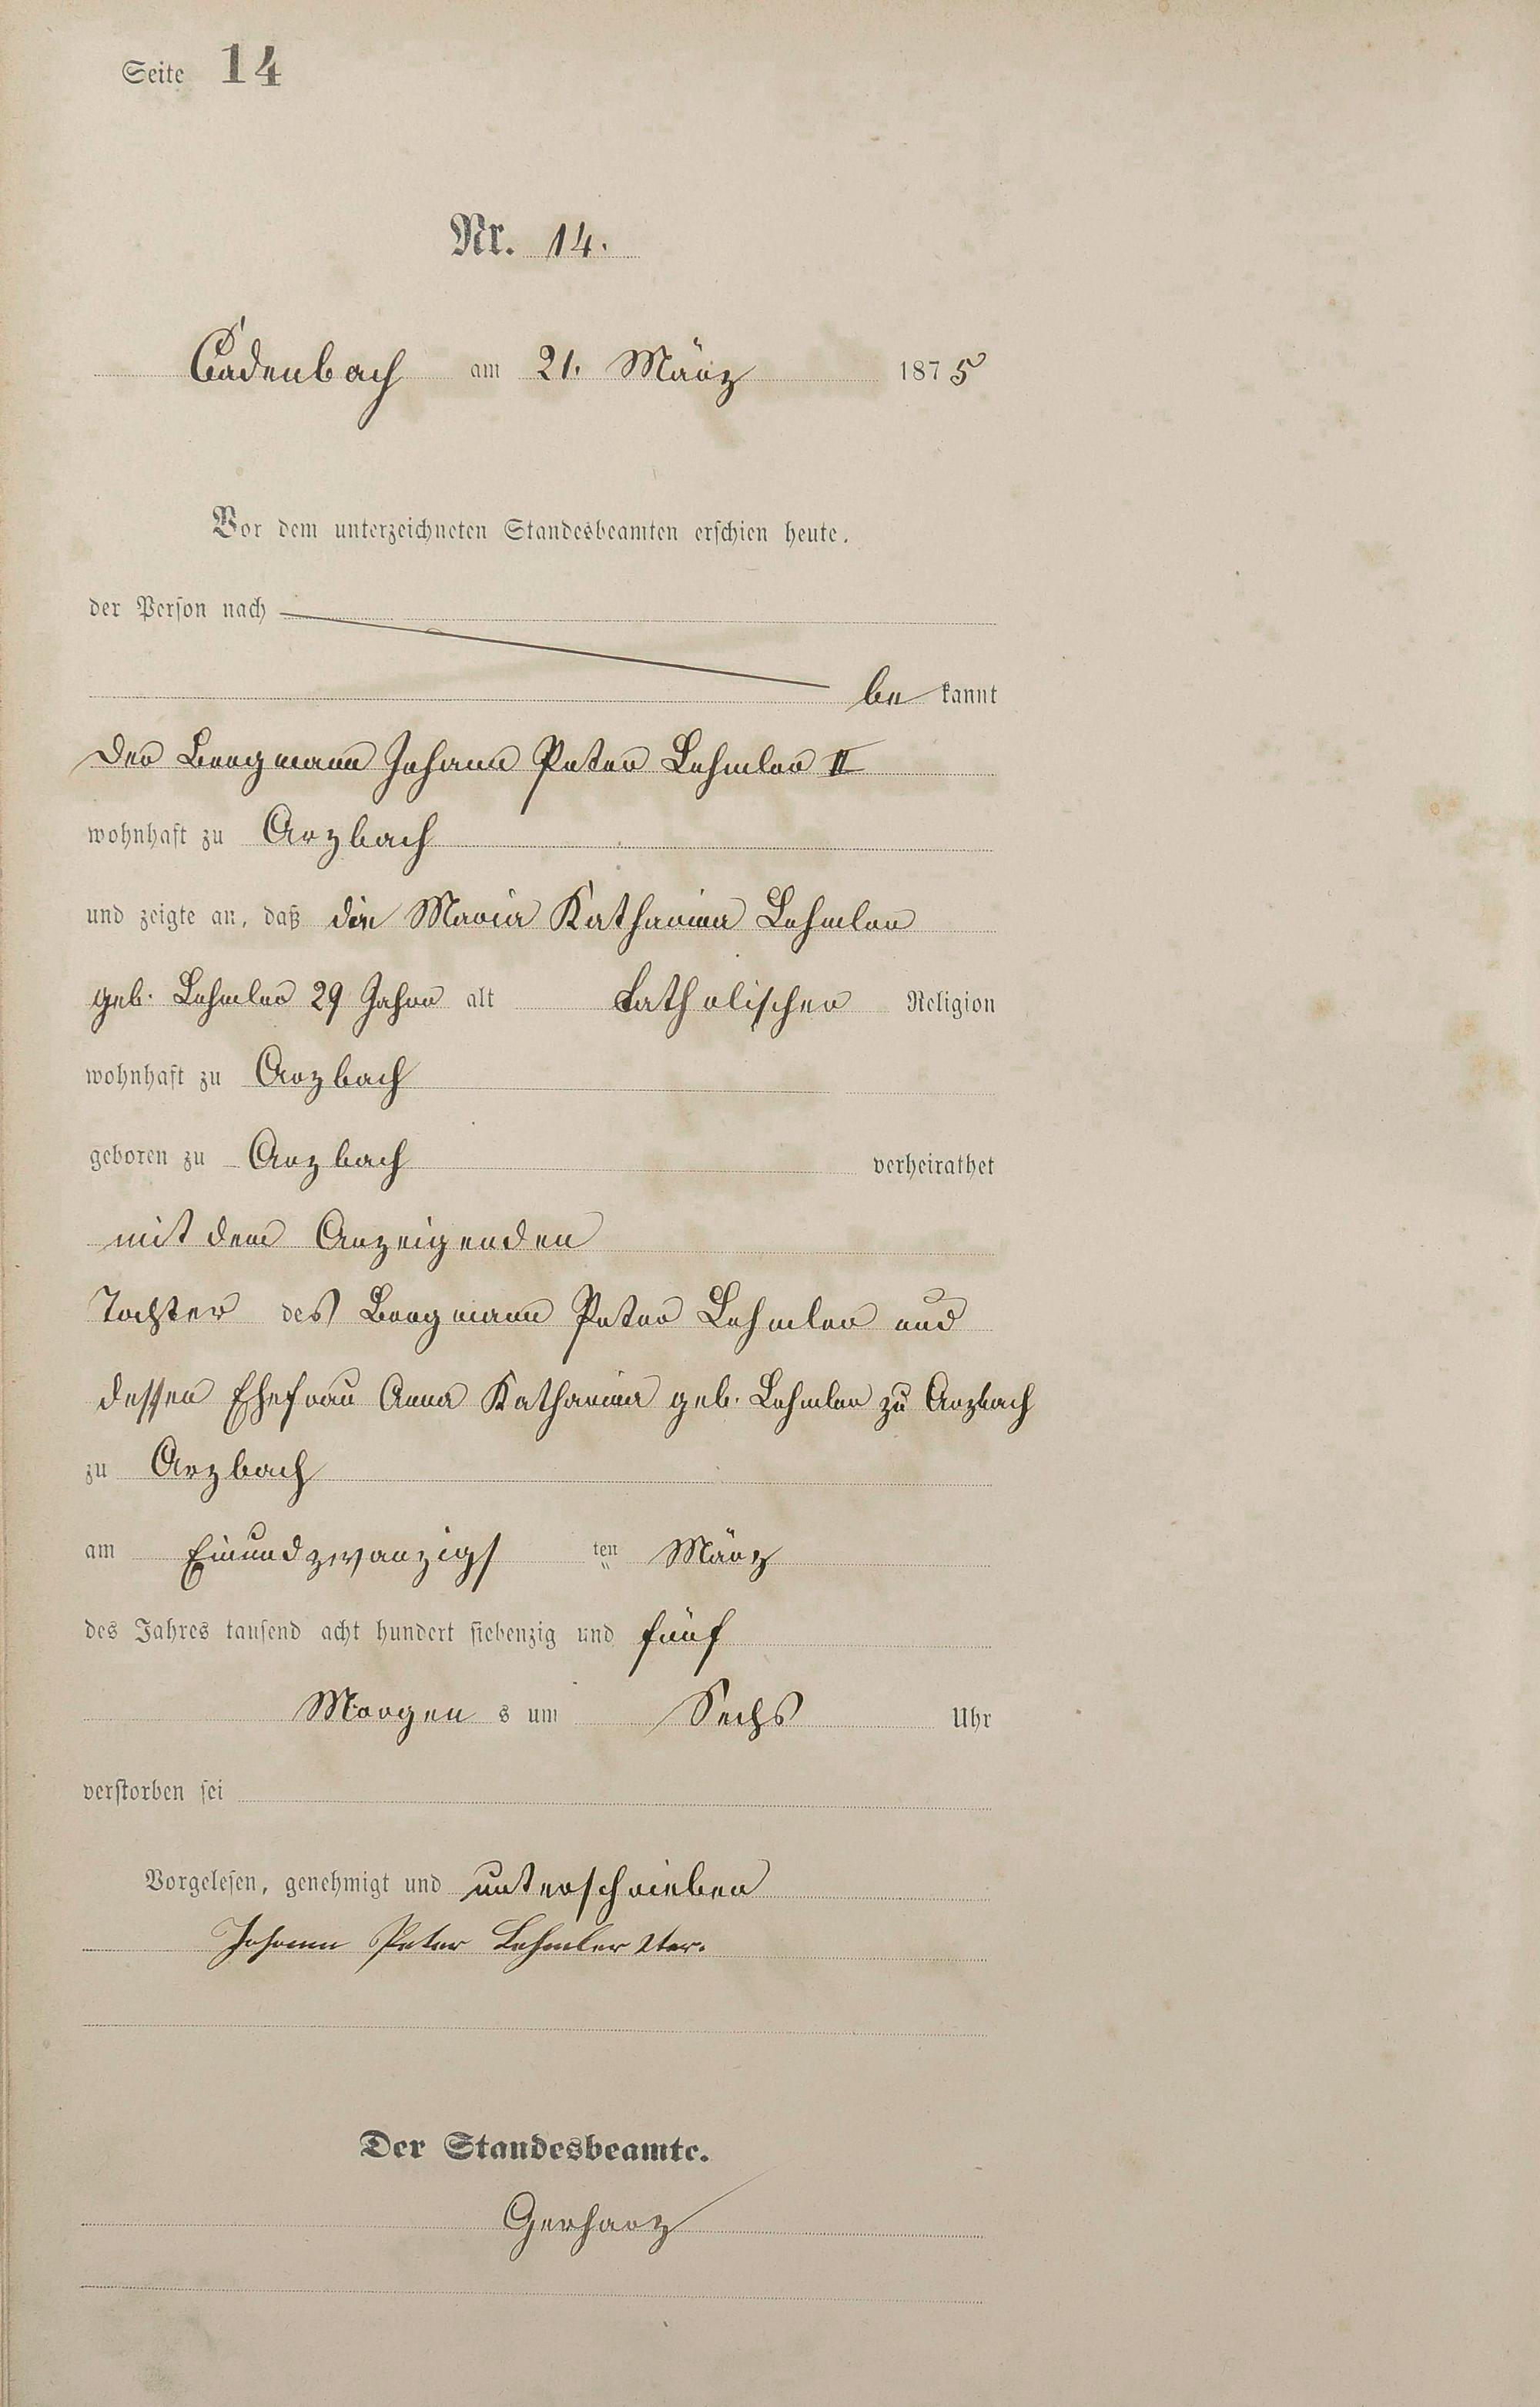 Seite 14
Nr. 14.
Cadenbach am 21. März 1875
Vor dem unterzeichneten Standesbeamten erschien heute,
der Person nach
be kannt
der Bergmann Johann Peter Lehmler II
wohnhaft zu Arzbach
und zeigte an, daß die Maria Katharina Lehmler
geb. Lehmler 29 Jahre alt katholischer Religion
wohnhaft zu Arzbach
geboren zu Arzbach verheirathet
mit dem Anzeigenden
Tochter des Bergmann Peter Lehmler und
dessen Ehefrau Anna Katharina geb. Lehmler zu Arzbach
zu Arzbach
am Einundzwanzigs ten März
des Jahres tausend acht hundert siebenzig und fünf
Morgen s um Sechs Uhr
verstorben sei
Vorgelesen, genehmigt und unterschrieben
Johann Peter Lehmler 2ter.
Der Standesbeamte.
Gerharz